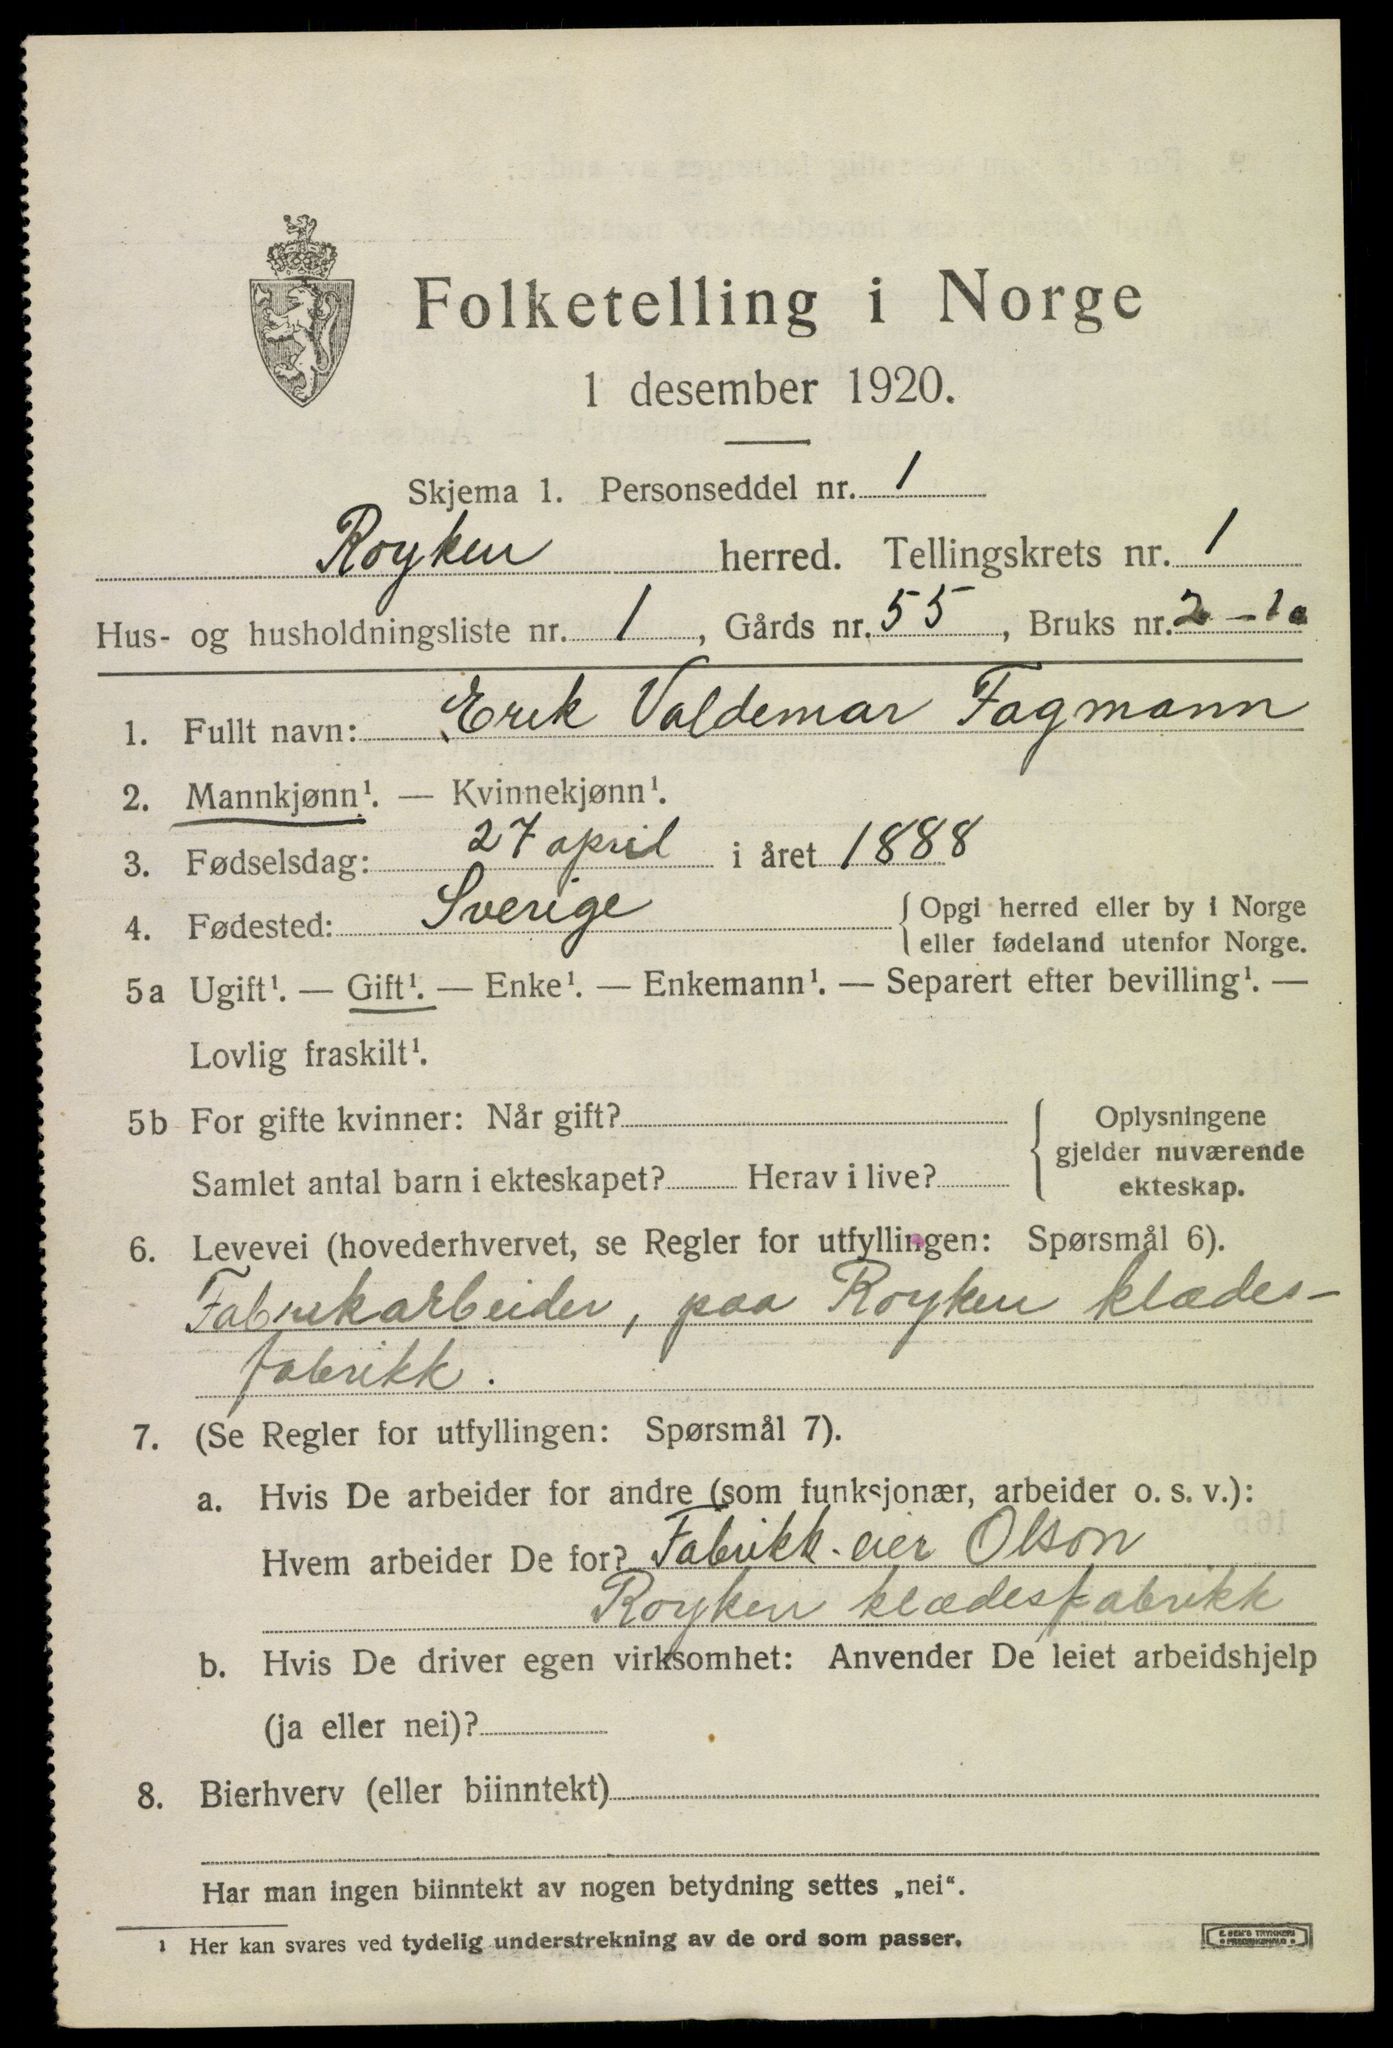 Folketelling i Norge
1 desember 1920.
Skjema 1. Personseddel nr. 1
Royken herred. Tellingskrets nr. 1
Hus- og husholdningsliste nr. 1, Gårds nr. 55, Bruks nr. 2-10
1. Fullt navn: Erik Valdemar Fagmann
2. Mannkjønn¹. — Kvinnekjønn¹.
3. Fødselsdag: 27 april i året 1888
4. Fødested: Sverige { Opgi herred eller by i Norge
eller fødeland utenfor Norge.
5a Ugift¹. — Gift¹. — Enke¹. — Enkemann¹. — Separert efter bevilling¹. —
Lovlig fraskilt¹.
5b For gifte kvinner: Når gift? { Oplysningene
gjelder nuværende
Samlet antal barn i ekteskapet? Herav i live? ekteskap.
6. Levevei (hovederhvervet, se Regler for utfyllingen: Spørsmål 6).
Fabrikarbeider, paa Royken klædes-
fabrikk.
7. (Se Regler for utfyllingen: Spørsmål 7).
a. Hvis De arbeider for andre (som funksjonær, arbeider o. s. v.):
Hvem arbeider De for? Fabrikk-eier Olson
Royken klædesfabrikk
b. Hvis De driver egen virksomhet: Anvender De leiet arbeidshjelp
(ja eller nei)?
8. Bierhverv (eller biinntekt)
Har man ingen biinntekt av nogen betydning settes „nei“.
¹ Her kan svares ved tydelig understrekning av de ord som passer.
E. SEM'S TRYKKERI
FREDRIKSHALD